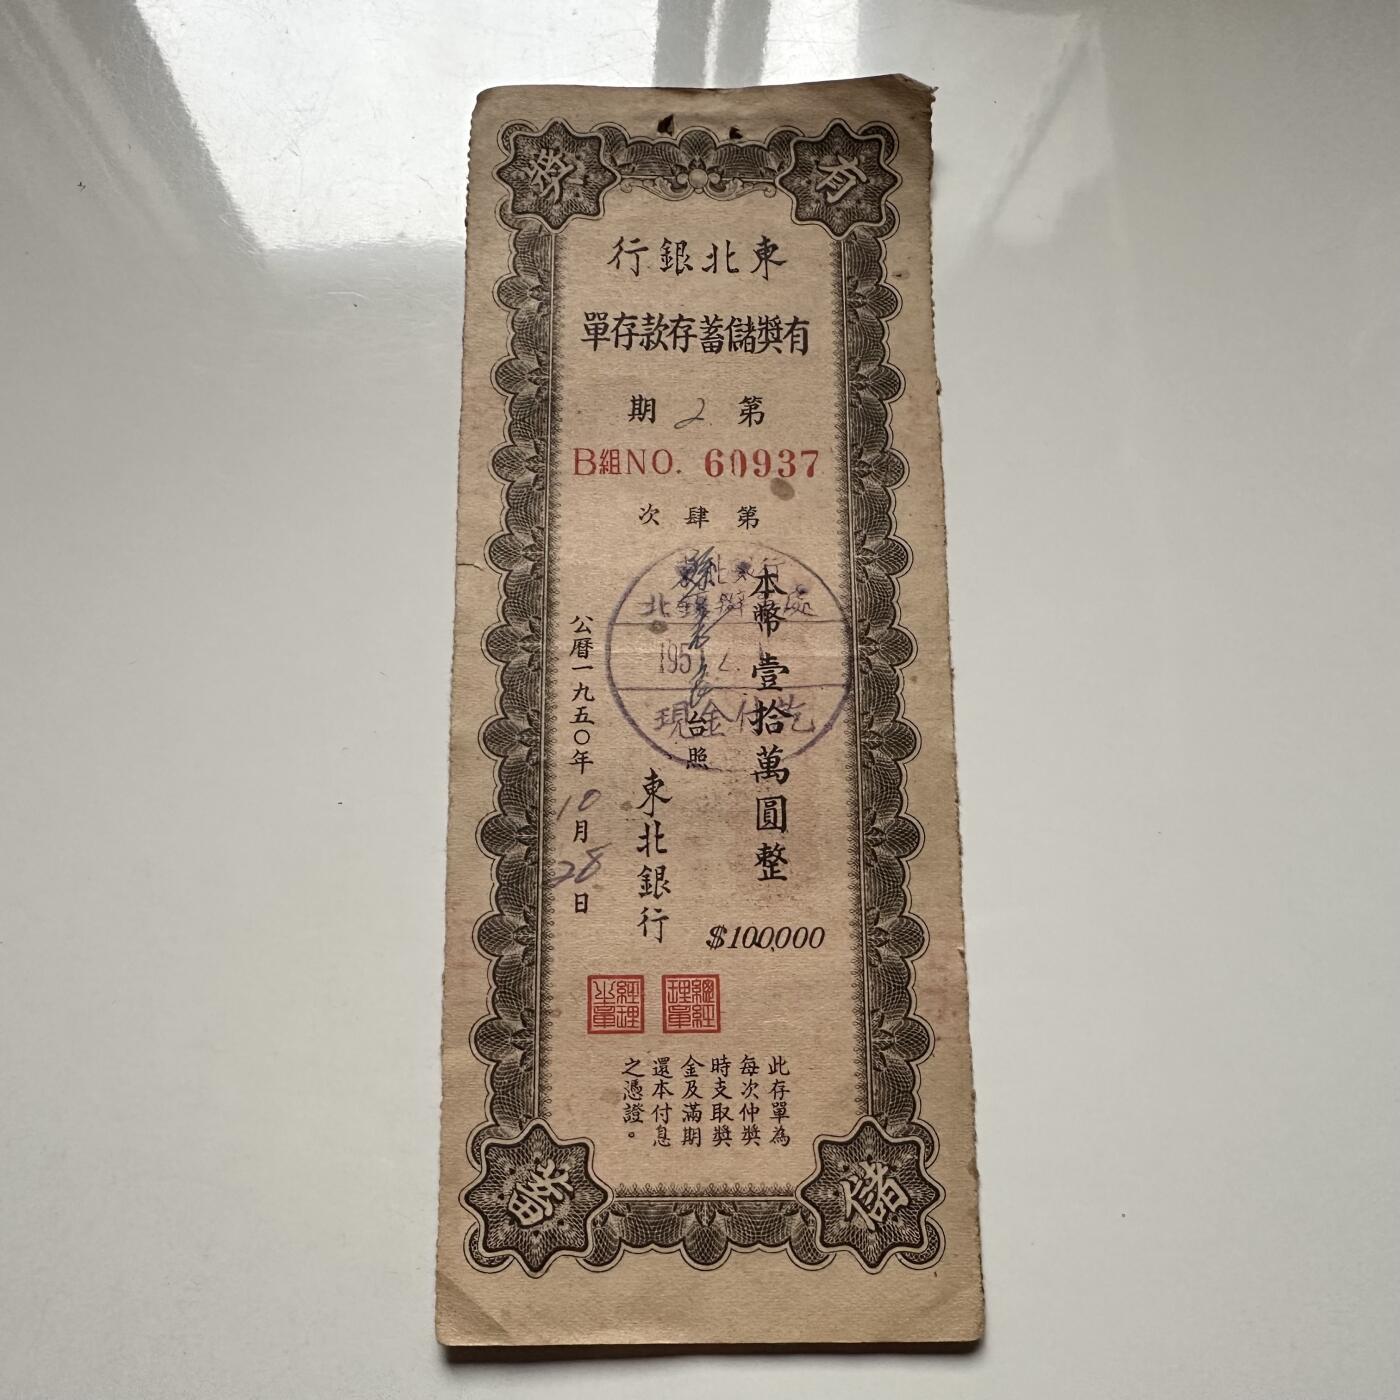 有獎儲蓄
東北銀行
有獎儲蓄存款存單
第2期
B組NO. 60937
第肆次
本幣壹拾萬圓整
$100,000
台照
東北銀行
公曆一九五〇年10月28日
東北銀行
北 辦 處
195
現金付訖
總經理章
經理之章
此存單為
每次仲獎
時支取獎
金及滿期
還本付息
之憑證。